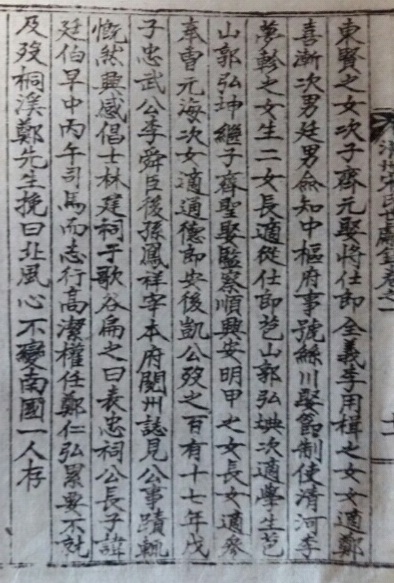 東賢之女次子齊元娶將仕郎全義李用楫之女女適鄭
喜漸次男廷男僉知中樞府事號絲川娶節制使清河李
夢軫之女生二女長適從仕郎苞山郭弘坱次適學生苞
山郭弘坤繼子齊聖娶監察順興安明甲之女長女適參
奉曺元海次女適通德郎安後凱公歿之百有十七年戊
子忠武公李舜臣後孫鳳祥宰本府閱州誌見公事蹟輒
慨然興感倡士林建祠于歌谷扁之曰表忠祠公長子諱
廷伯早中丙午司馬而志行高潔權任鄭仁弘累要不就
及歿桐溪鄭先生挽曰北風心不變南國一人存
卷之一
十一